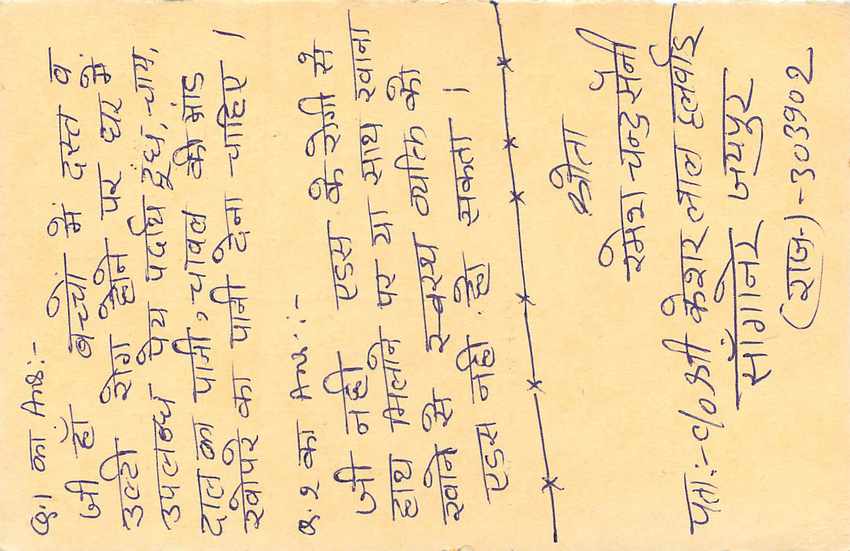 Q.1 का Ans:-
जी हाँ बच्चों में दस्त व
उल्टी रोग होने पर घर में
उपलब्ध पेय पदार्थ दूध, चाय,
दाल का पानी, चावल की मांड
खोपरे का पानी देना चाहिए।
Q.2 का Ans:-
जी नही एडस के रोगी से
हाथ मिलाने पर या साथ खाना
खाने से स्वस्थ व्यक्ति को
एडस नही हो सकता।
श्रोता
रमेश चन्द सैनी
पता:- C/o श्री केशर लाल हलवाई
सांगानेर जयपुर
(राज.)-303902